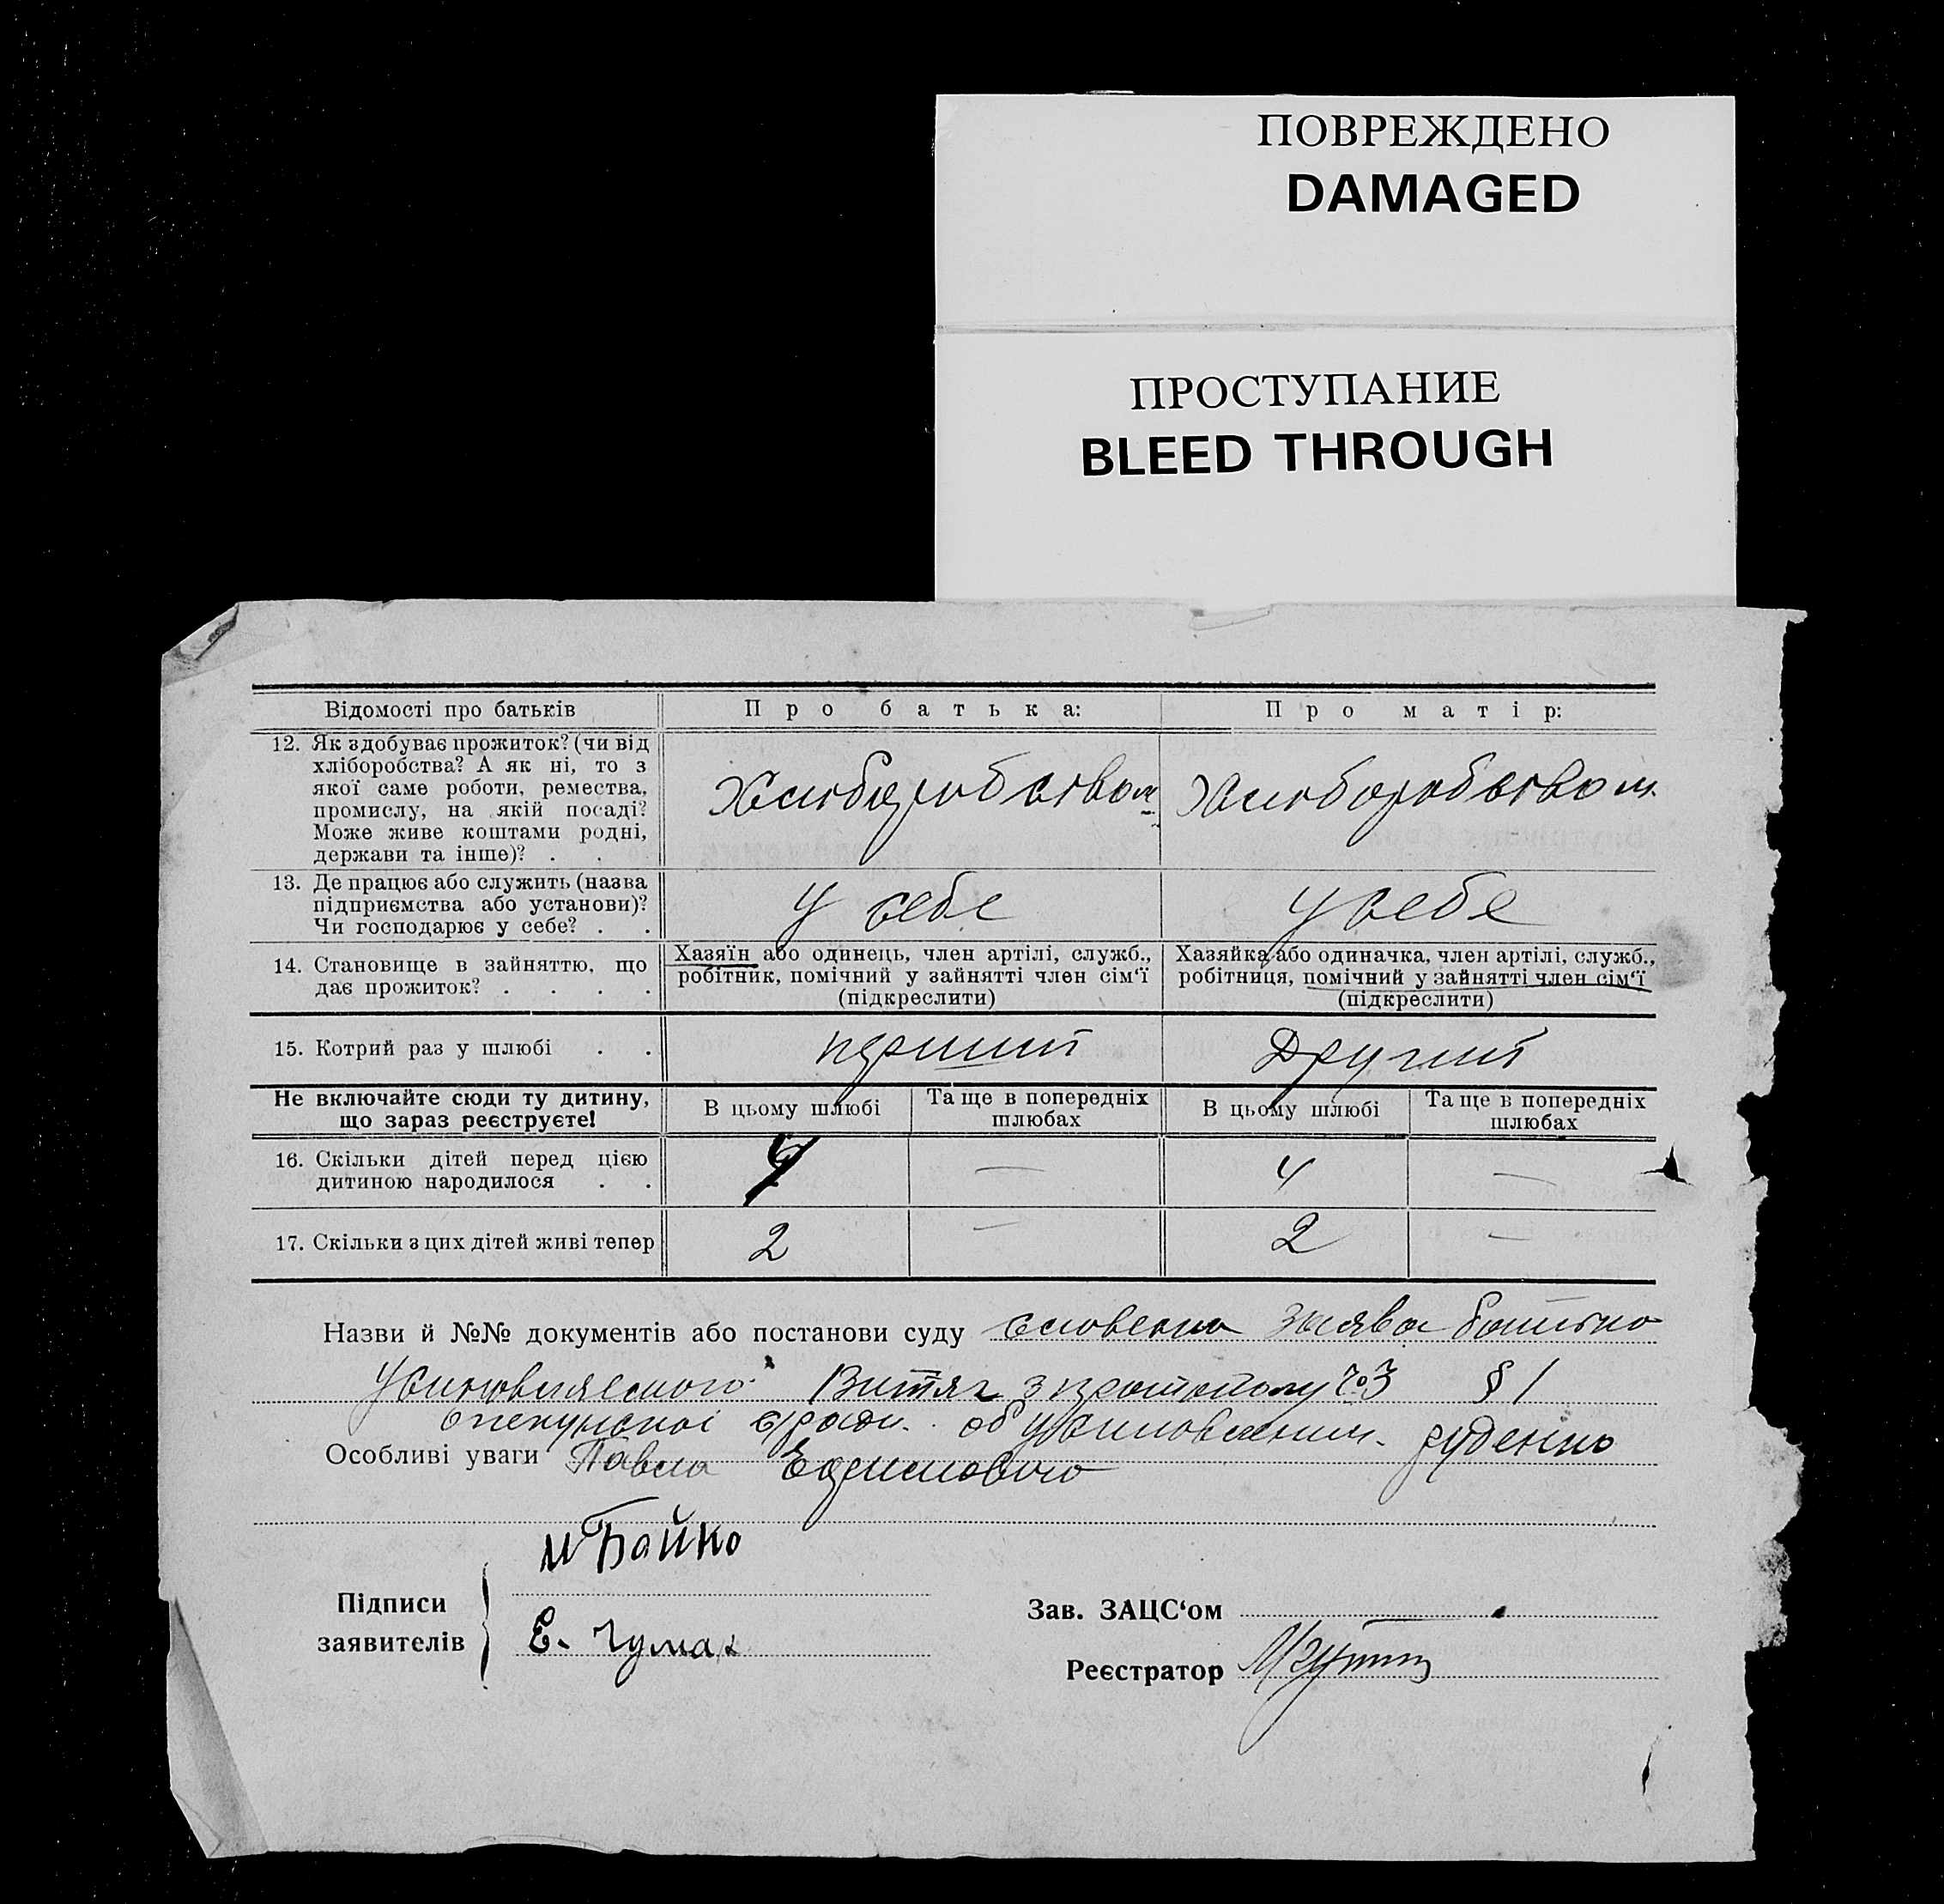 ПОВРЕЖДЕНО
DAMAGED
ПРОСТУПАНИЕ
BLEED THROUGH
Відомості про батьків
Про батька:
Про матір:
12. Як здобуває прожиток? (чи від
хліборобства? А як ні, то з
якої саме роботи, ремества,
промислу, на якій посаді?
Може живе коштами родні,
держави та інше)? . .
Хліборобством
Хліборобством
13. Де працює або служить (назва
підприємства або установи)?
Чи господарює у себе? . .
У себе
У себе
14. Становище в зайняттю, що
дає прожиток? . . . .
Хазяїн або одинець, член артілі, служб.,
робітник, помічний у зайнятті член сім‘ї
(підкреслити)
Хазяйка або одиначка, член артілі, служб.,
робітниця, помічний у зайнятті член сім‘ї
(підкреслити)
15. Котрий раз у шлюбі . .
перший
Другий
Не включайте сюди ту дитину,
що зараз реєструєте!
В цьому шлюбі
Та ще в попередніх
шлюбах
В цьому шлюбі
Та ще в попередніх
шлюбах
16. Скільки дітей перед цією
дитиною народилося . .
4
—
4
—
17. Скільки з цих дітей живі тепер
2
—
2
—
Назви й №№ документів або постанови суду словесна заява батька
Витяг з протоколу № 3 § 1
Руденко
Особливі уваги Павла
М Бойко
Підписи
заявителів
Е. Чумак
Зав. ЗАЦС‘ом
Реєстратор